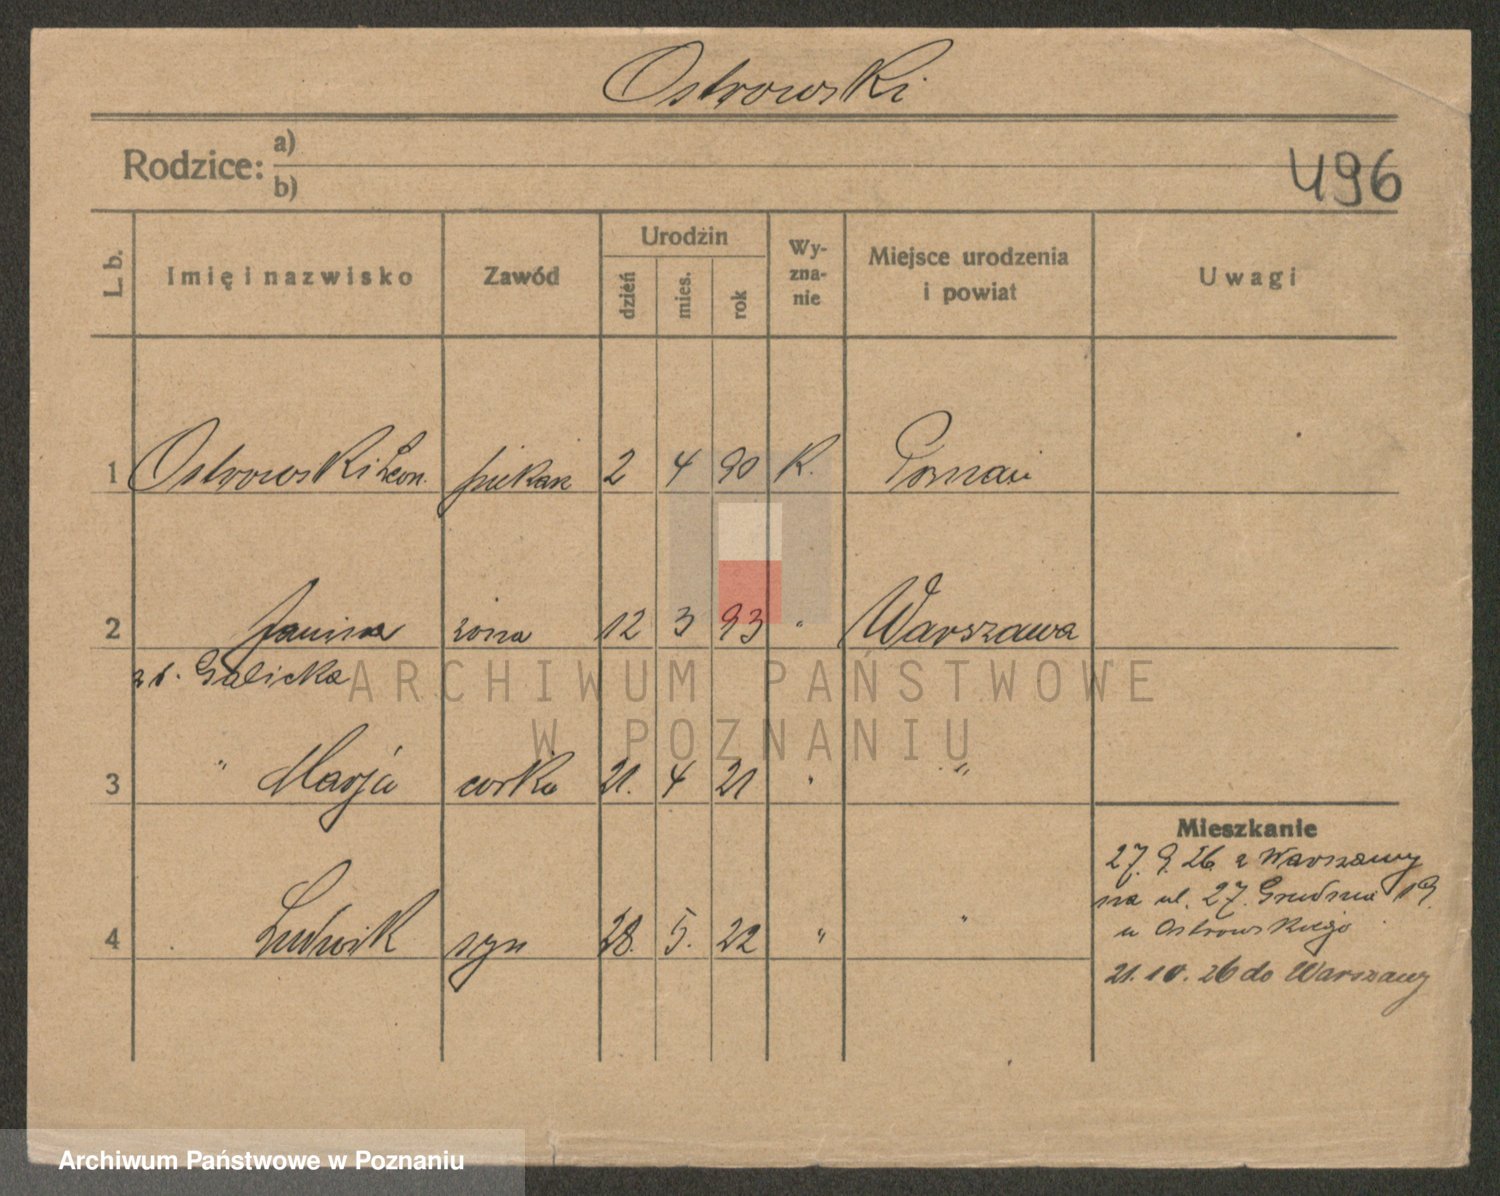 Ostrowski
Rodzice: a)
b)
496
L. b. Imię i nazwisko Zawód Urodzin dzień mies. rok Wy-zna-nie Miejsce urodzenia i powiat Uwagi
1 Ostrowski Leon. piekarz 2 4 90 K. Poznań
2 Janina żona 12 3 93 " Warszawa
zd. Galicka
3 " Marja corka 21. 4 21 " "
4 Ludwik syn 28. 5. 22 " "
Mieszkanie
27. 9. 26 z Warszawy
na ul. 27. Grudnia 19.
u Ostrowskiego
21. 10. 26 do Warszawy
ARCHIWUM PAŃSTWOWE
W POZNANIU
Archiwum Państwowe w Poznaniu